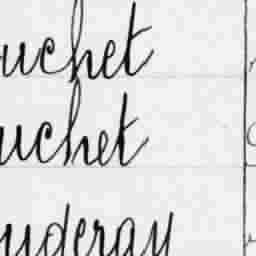 uchet
uchet
uderay